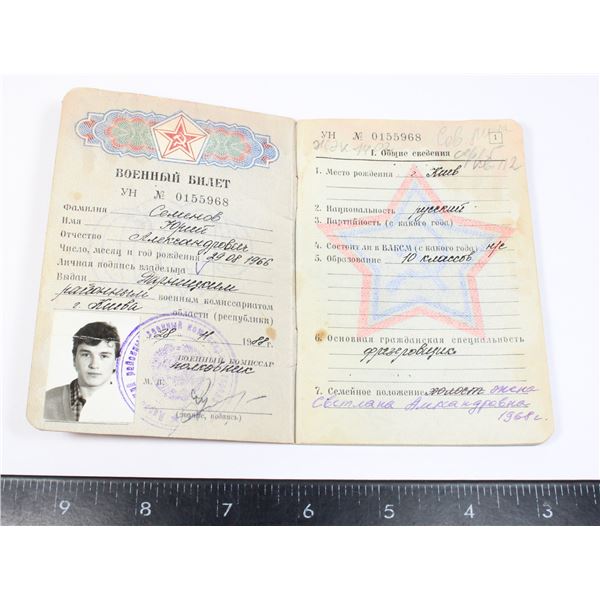 ВОЕННЫЙ БИЛЕТ
УН № 0155968
Фамилия Семенов
Имя Юрий
Отчество Александрович
Число, месяц и год рождения 29 08 1966
Личная подпись владельца
Выдан Дарницким
районным военным комиссариатом
г. Киева области (республики)
28 11 1988 г.
ВОЕННЫЙ КОМИССАР
полковник
М. П.
(звание, подпись)
УН № 0155968
1
I. Общие сведения
1. Место рождения г. Киев
2. Национальность русский
3. Партийность (с какого года)
4. Состоит ли в ВЛКСМ (с какого года) н/с
5. Образование 10 классов
6. Основная гражданская специальность
фрезеровщик
7. Семейное положение холост жена
Светлана Александровна
1968 г.
9 8 7 6 5 4 3